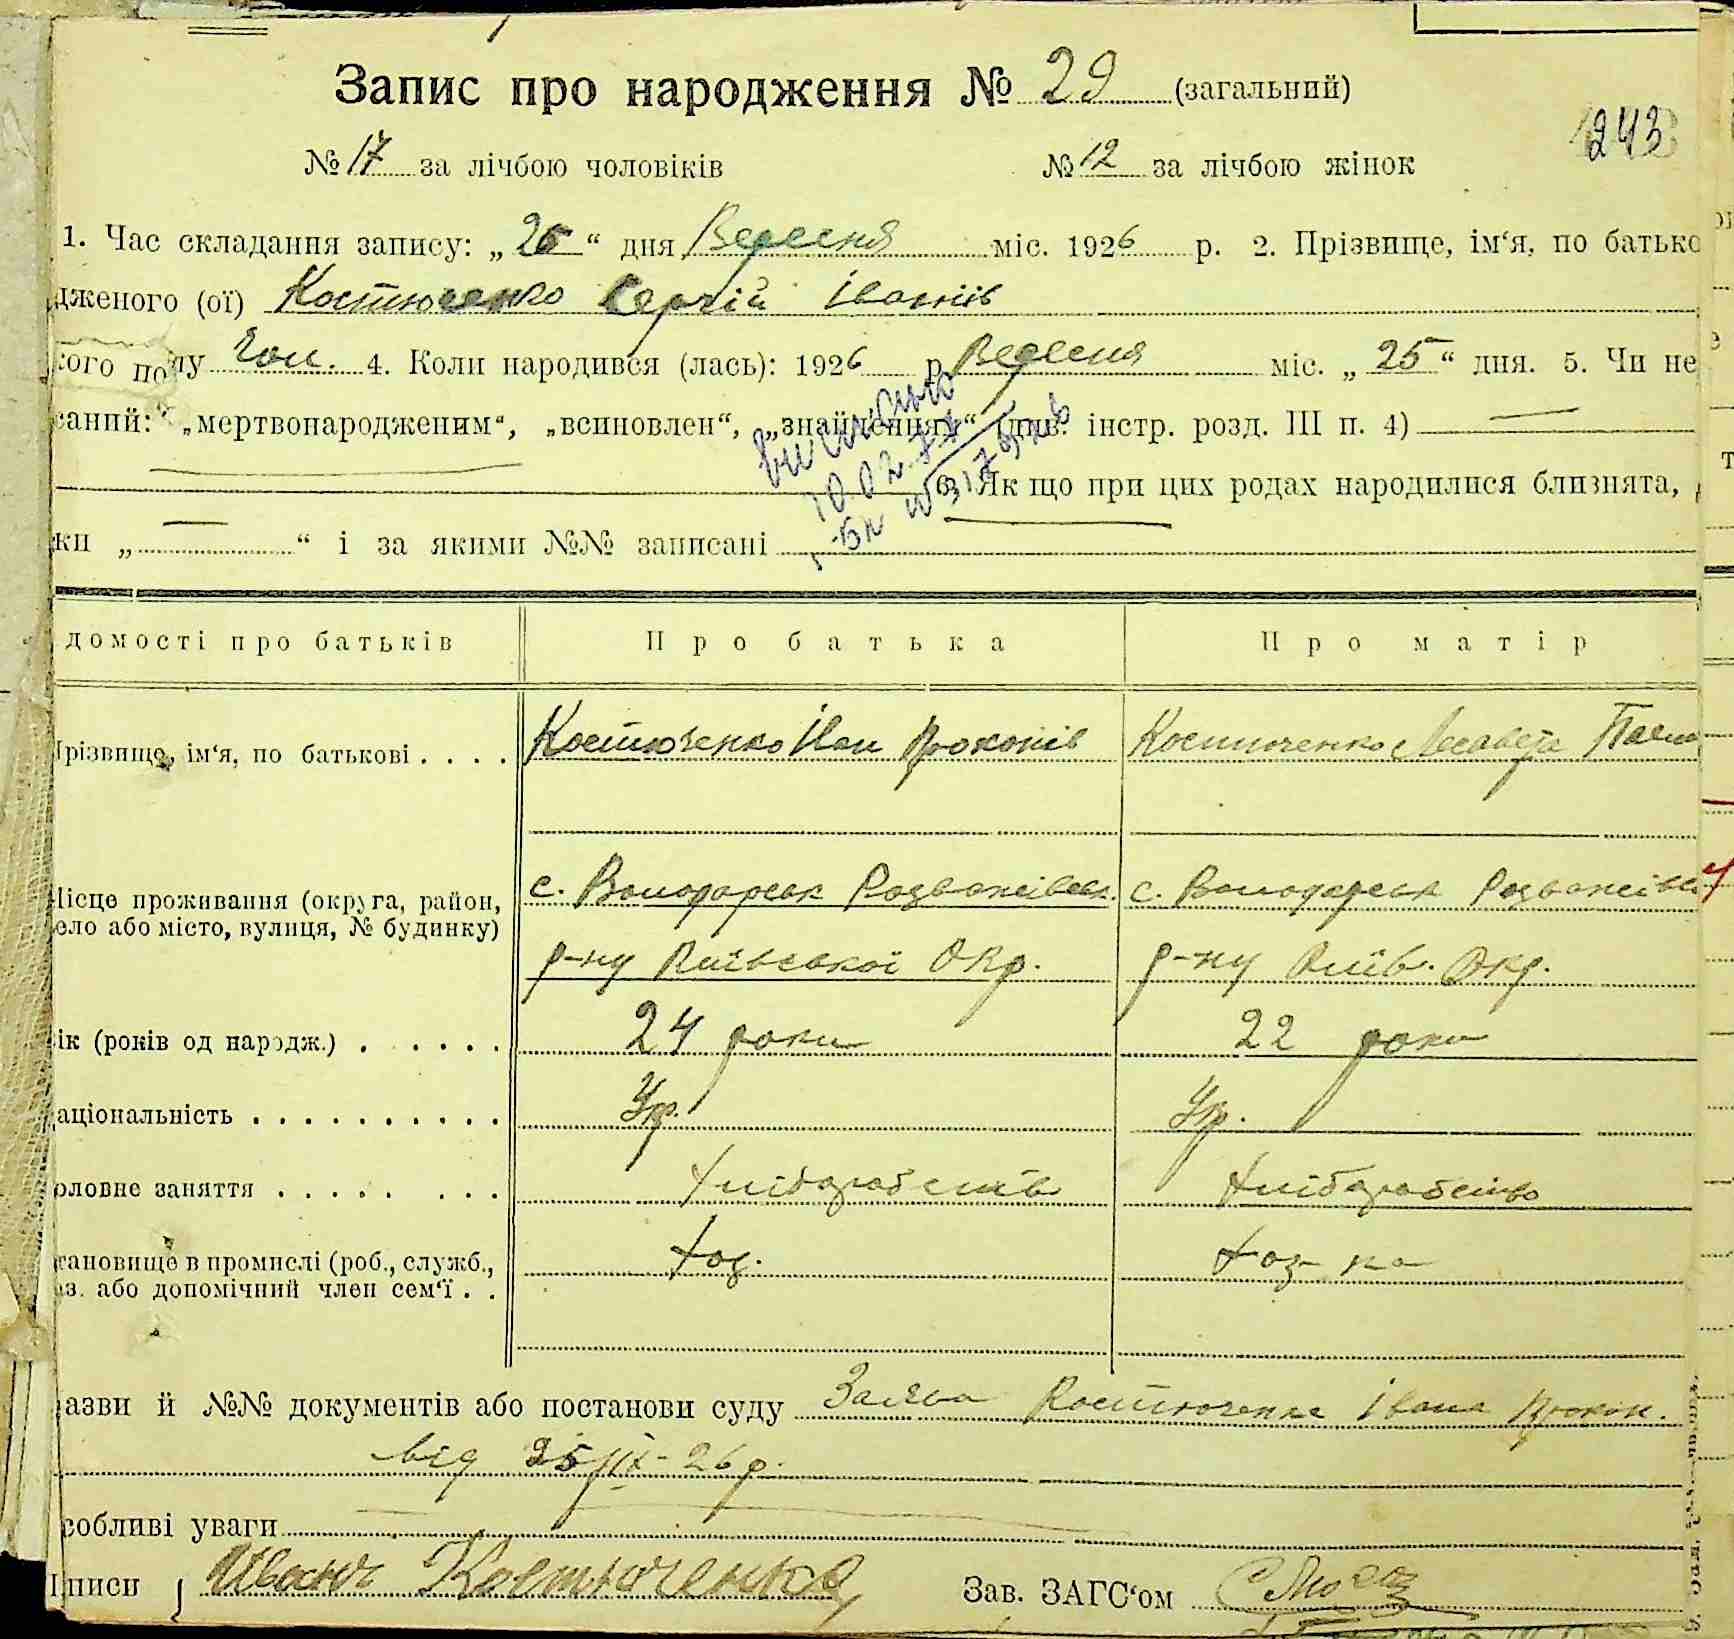 Запис про народження № 29 (загальний)
243
№ 17 за лічбою чоловіків № 12 за лічбою жінок
1. Час складання запису: „25“ дня Вересня міс. 1926 р. 2. Прізвище, ім‘я, по батько
дженого (ої) Костюченко Сергій Іванів
кого полу Чол. 4. Коли народився (лась): 1926 р. Вересня міс. „25“ дня. 5. Чи не
саний: „мертвонародженим“, „всиновлен“, „знайденням“ (див. інстр. розд. III п. 4) —
6. Як що при цих родах народилися близнята,
ки „ — “ і за якими №№ записані
домості про батьків Про батька Про матір
Прізвище, ім‘я, по батькові . . . . Костюченко Іван Прокопів Костюченко Лисавета Павл
Місце проживання (округа, район, с. Володарськ Розважівськ. с. Володарськ Розважівсь
село або місто, вулиця, № будинку) р-ну Київської Окр. р-ну Київ. Окр.
ік (років од нардж.) . . . . . . 24 роки 22 роки
аціональність . . . . . . . . . . Укр. Укр.
оловне заняття . . . . . . . . Хліборобств Хліборобство
тановище в промислі (роб., служб., Хоз. Хоз-ка
з. або допомічний член сем‘ї . .
азви й №№ документів або постанови суду Заява Костюченка Івана Прокоп.
від 25/IX-26 р.
собливі уваги
писи Иван Костюченко Зав. ЗАГС‘ом